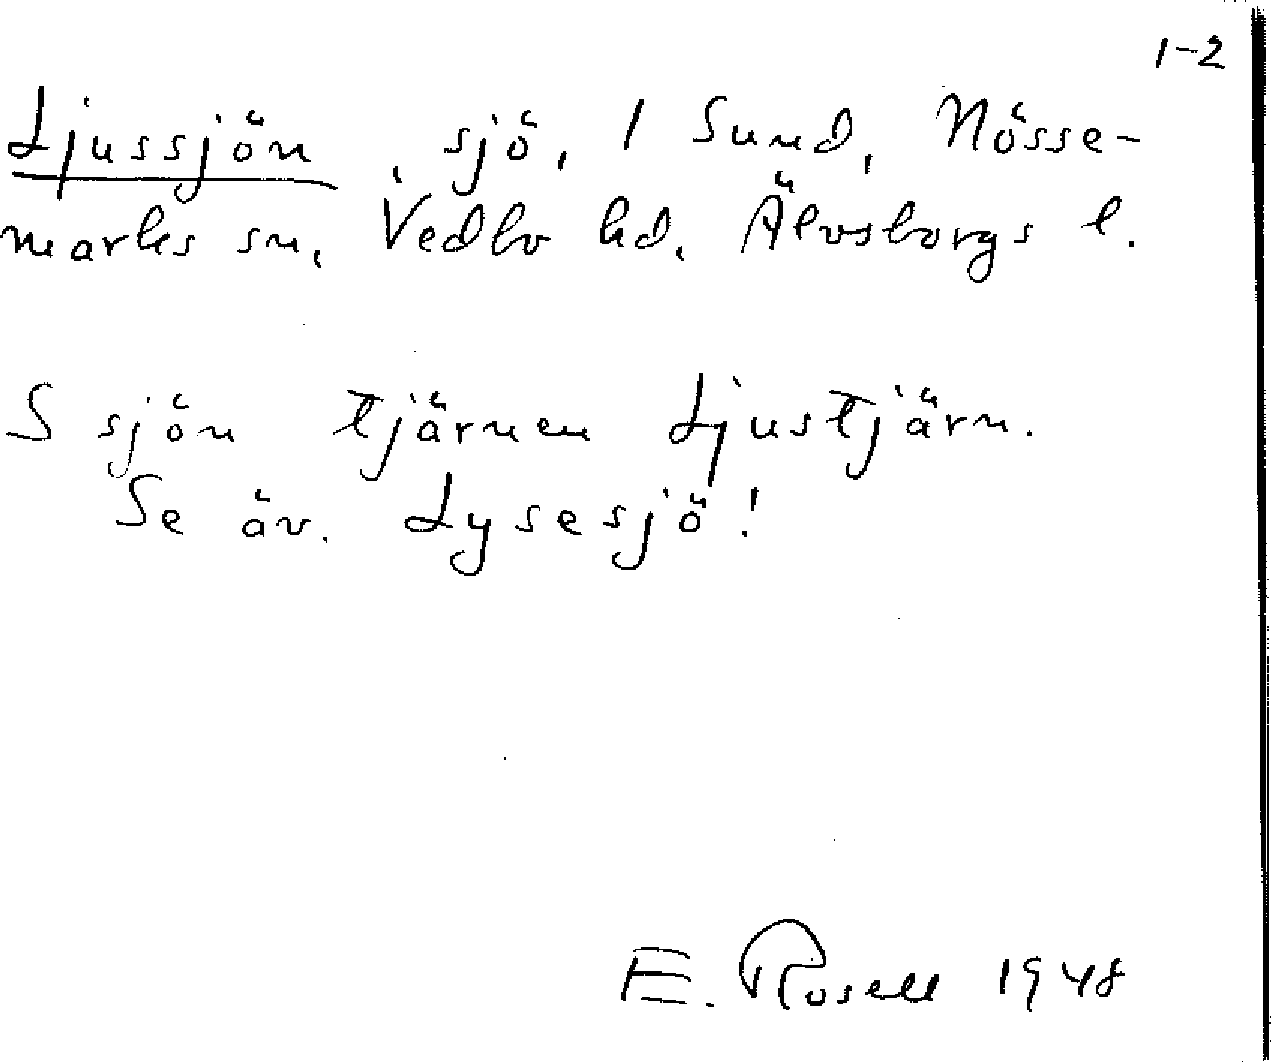 1-2
Ljussjön, sjö, 1 Sund, Nösse-
marks sn, Vedbo hd, Älvsborgs l.
S sjön tjärnen Ljustjärn.
Se äv. Lysesjö!
E. Rosell 1948